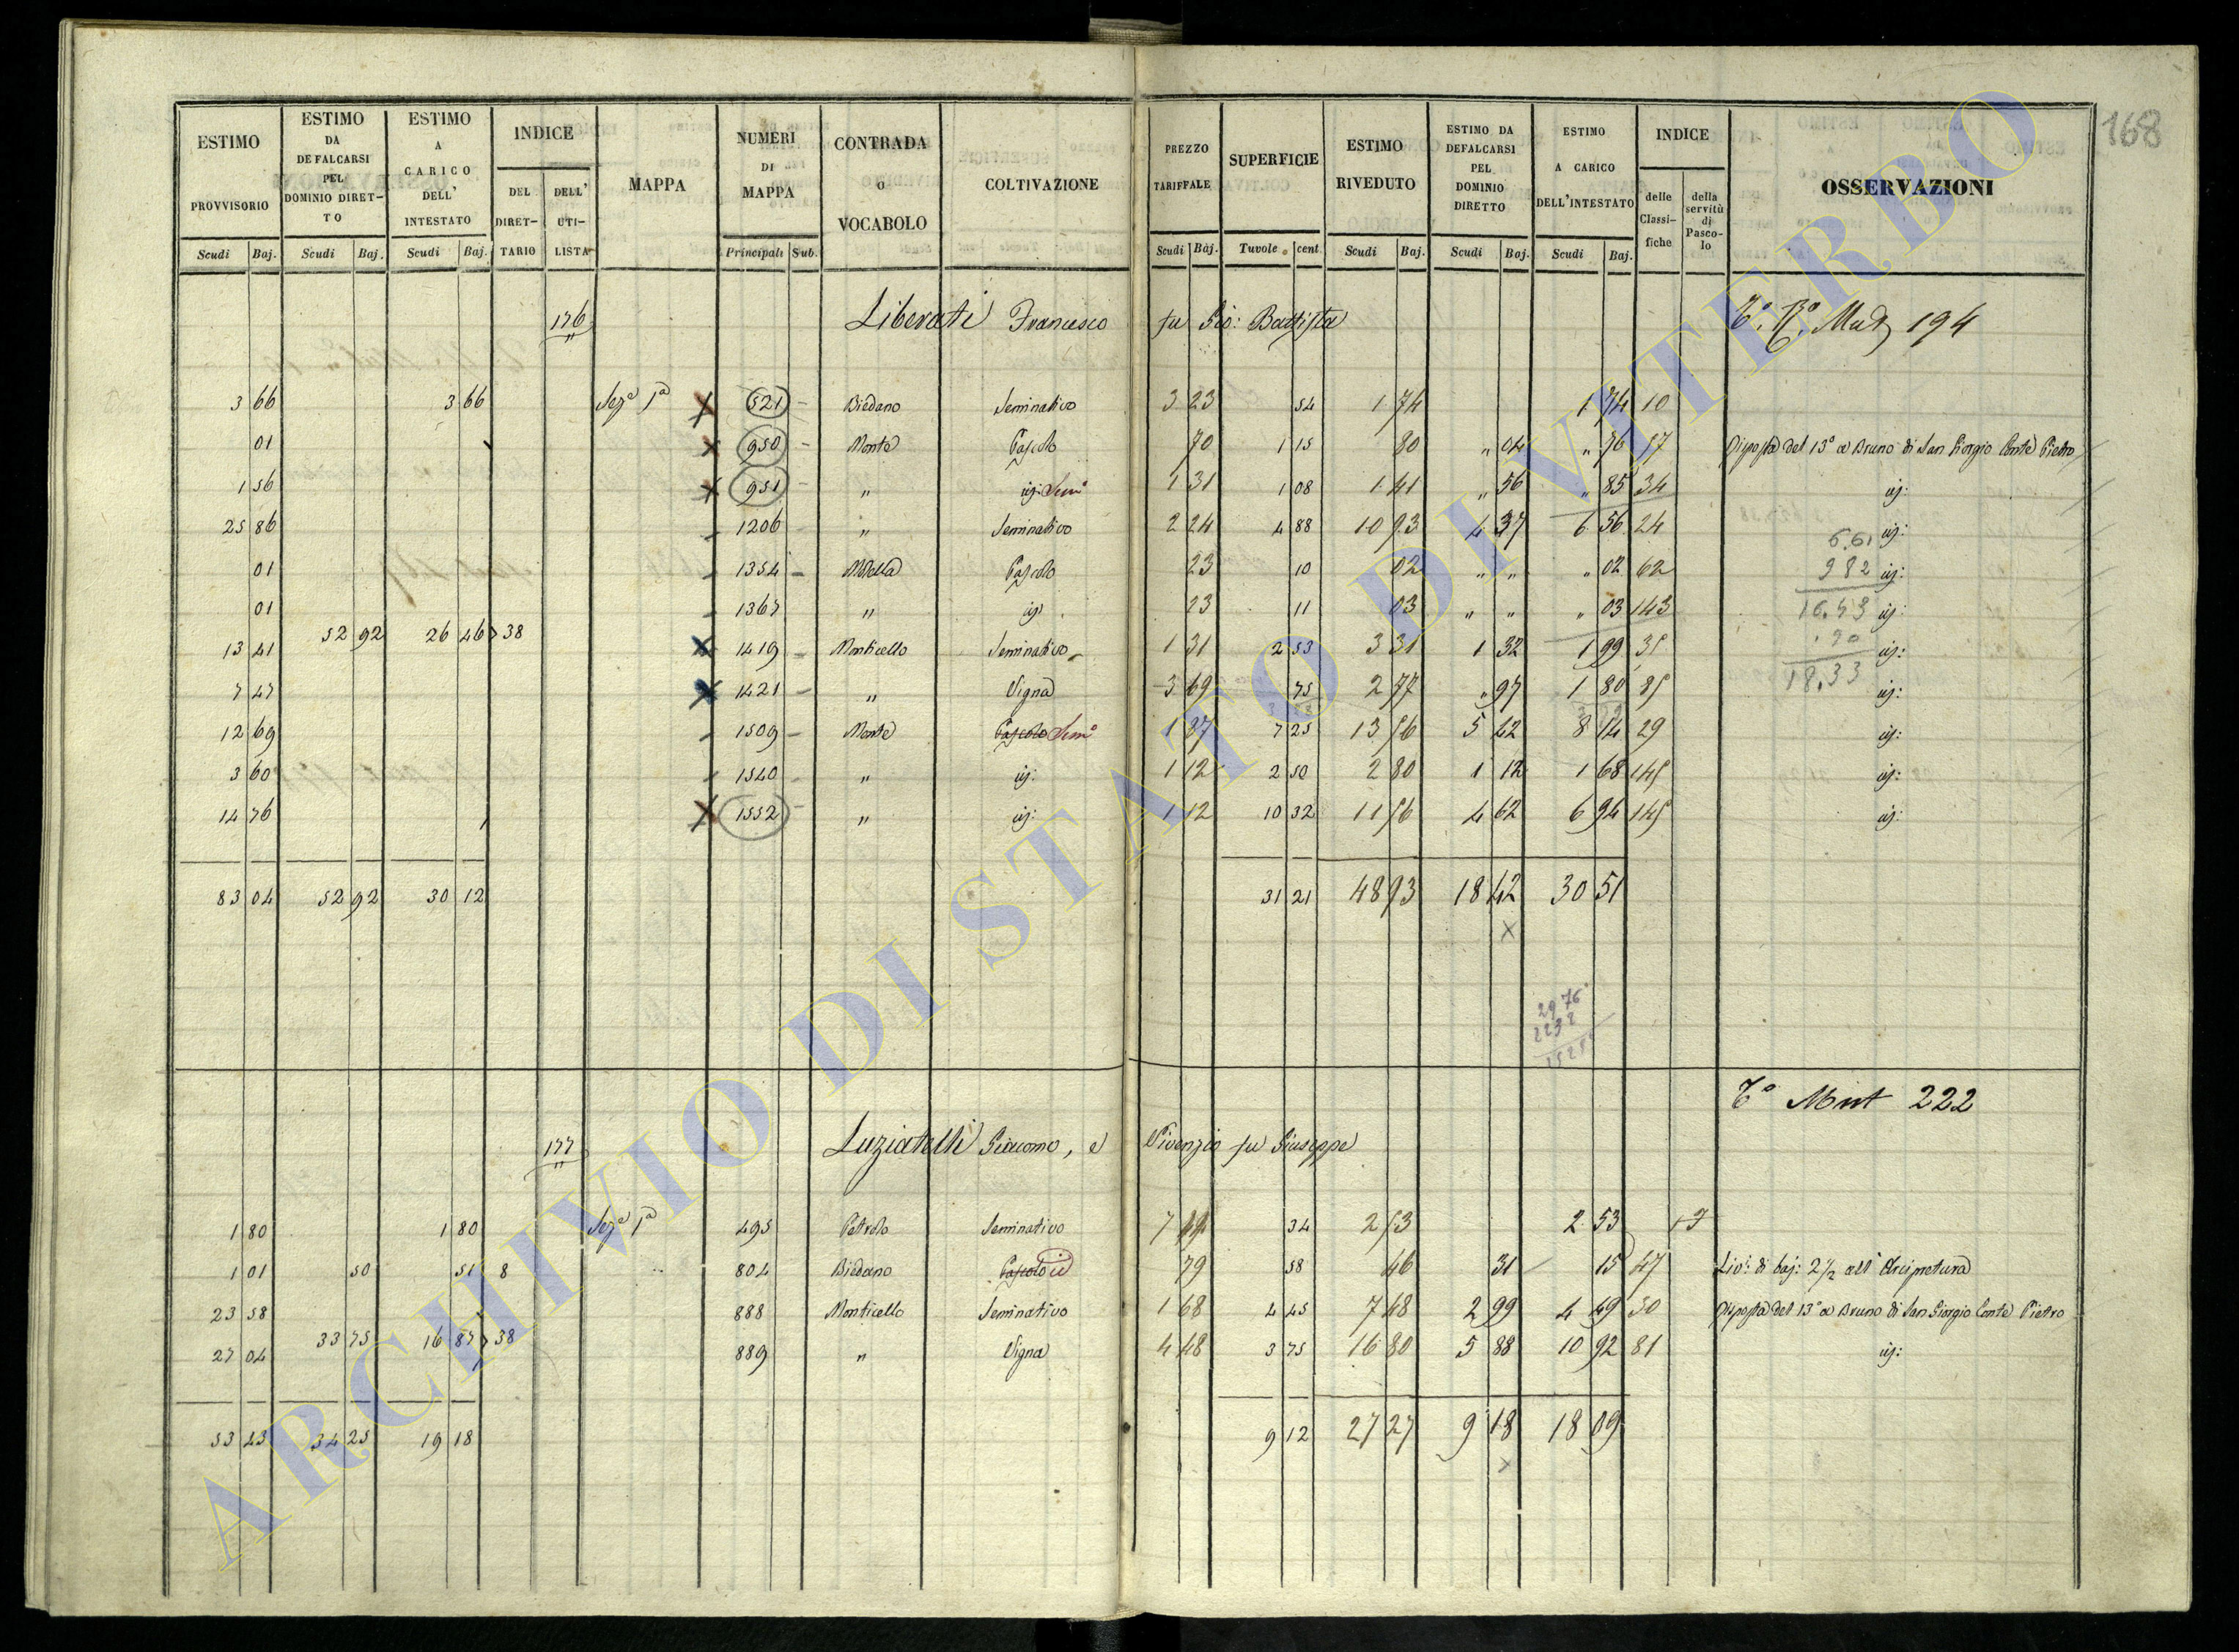 168
ESTIMO PROVVISORIO | ESTIMO DA DEFALCARSI PEL DOMINIO DIRETTO | ESTIMO A CARICO DELL' INTESTATO | INDICE | MAPPA | NUMERI DI MAPPA | CONTRADA O VOCABOLO | COLTIVAZIONE | PREZZO TARIFFALE | SUPERFICIE | ESTIMO RIVEDUTO | ESTIMO DA DEFALCARSI PEL DOMINIO DIRETTO | ESTIMO A CARICO DELL'INTESTATO | INDICE | OSSERVAZIONI
DEL DIRETTARIO | DELL' UTILISTA | delle Classifiche | della servitù di Pascolo
Scudi | Baj. | Scudi | Baj. | Scudi | Baj. | Principali | Sub. | Scudi | Baj. | Tavole | cent. | Scudi | Baj. | Scudi | Baj. | Scudi | Baj.
176 Liberati Francesco fu Gio: Battista 194
3 66 3 66 Sez.e 1a 521 Biedano Seminativo 3 23 54 1 74 1 74 10
01 950 Monte Pascolo 70 1 15 80 " 04 " 76 57 Risposta del 13° a Bruno di San Giorgio Conte Pietro
1 56 951 " id: Sem° 1 31 1 08 1 41 " 56 " 85 34 id:
25 86 1206 " Seminativo 2 24 4 88 10 93 4 37 6 56 24 id:
01 1354 Pascolo 23 10 02 " " " 02 62 id:
01 1367 " id 23 11 03 " " " 03 143 id:
52 92 26 46 38
13 41 1419 Monticello Seminativo 1 31 2 53 3 31 1 32 1 99 35 id:
7 47 1421 " Vigna 3 69 75 2 77 " 97 1 80 85 id:
12 69 1509 Monte Pascolo Sem° 1 87 7 25 13 56 5 42 8 14 29 id:
3 60 1540 " id: 1 12 2 50 2 80 1 12 1 68 145 id:
14 76 1552 " id: 1 12 10 32 11 56 4 62 6 94 145 id:
6.61
9 82
18.33
83 04 52 92 30 12 31 21 48 93 18 42 30 51
29 76
2232
T° Mut 222
177 Luziatelli Giacomo, e Vivenzio fu Giuseppe
1 80 1 80 Sez.e 1a 495 Petrolo Seminativo 34 2 53 2 53
1 01 50 51 8 804 Biedano Pascolo id 79 58 46 31 15 47 Liv: di baj: 2 1/2 all' Arcipretura
23 58 888 Monticello Seminativo 1 68 4 45 7 48 2 99 4 49 30 Risposta del 13° a Bruno di San Giorgio Conte Pietro
33 75 16 87 38
27 04 889 " Vigna 4 48 3 75 16 80 5 88 10 92 81 id:
53 43 34 25 19 18 9 12 27 27 9 18 18 09
ARCHIVIO DI STATO DI VITERBO